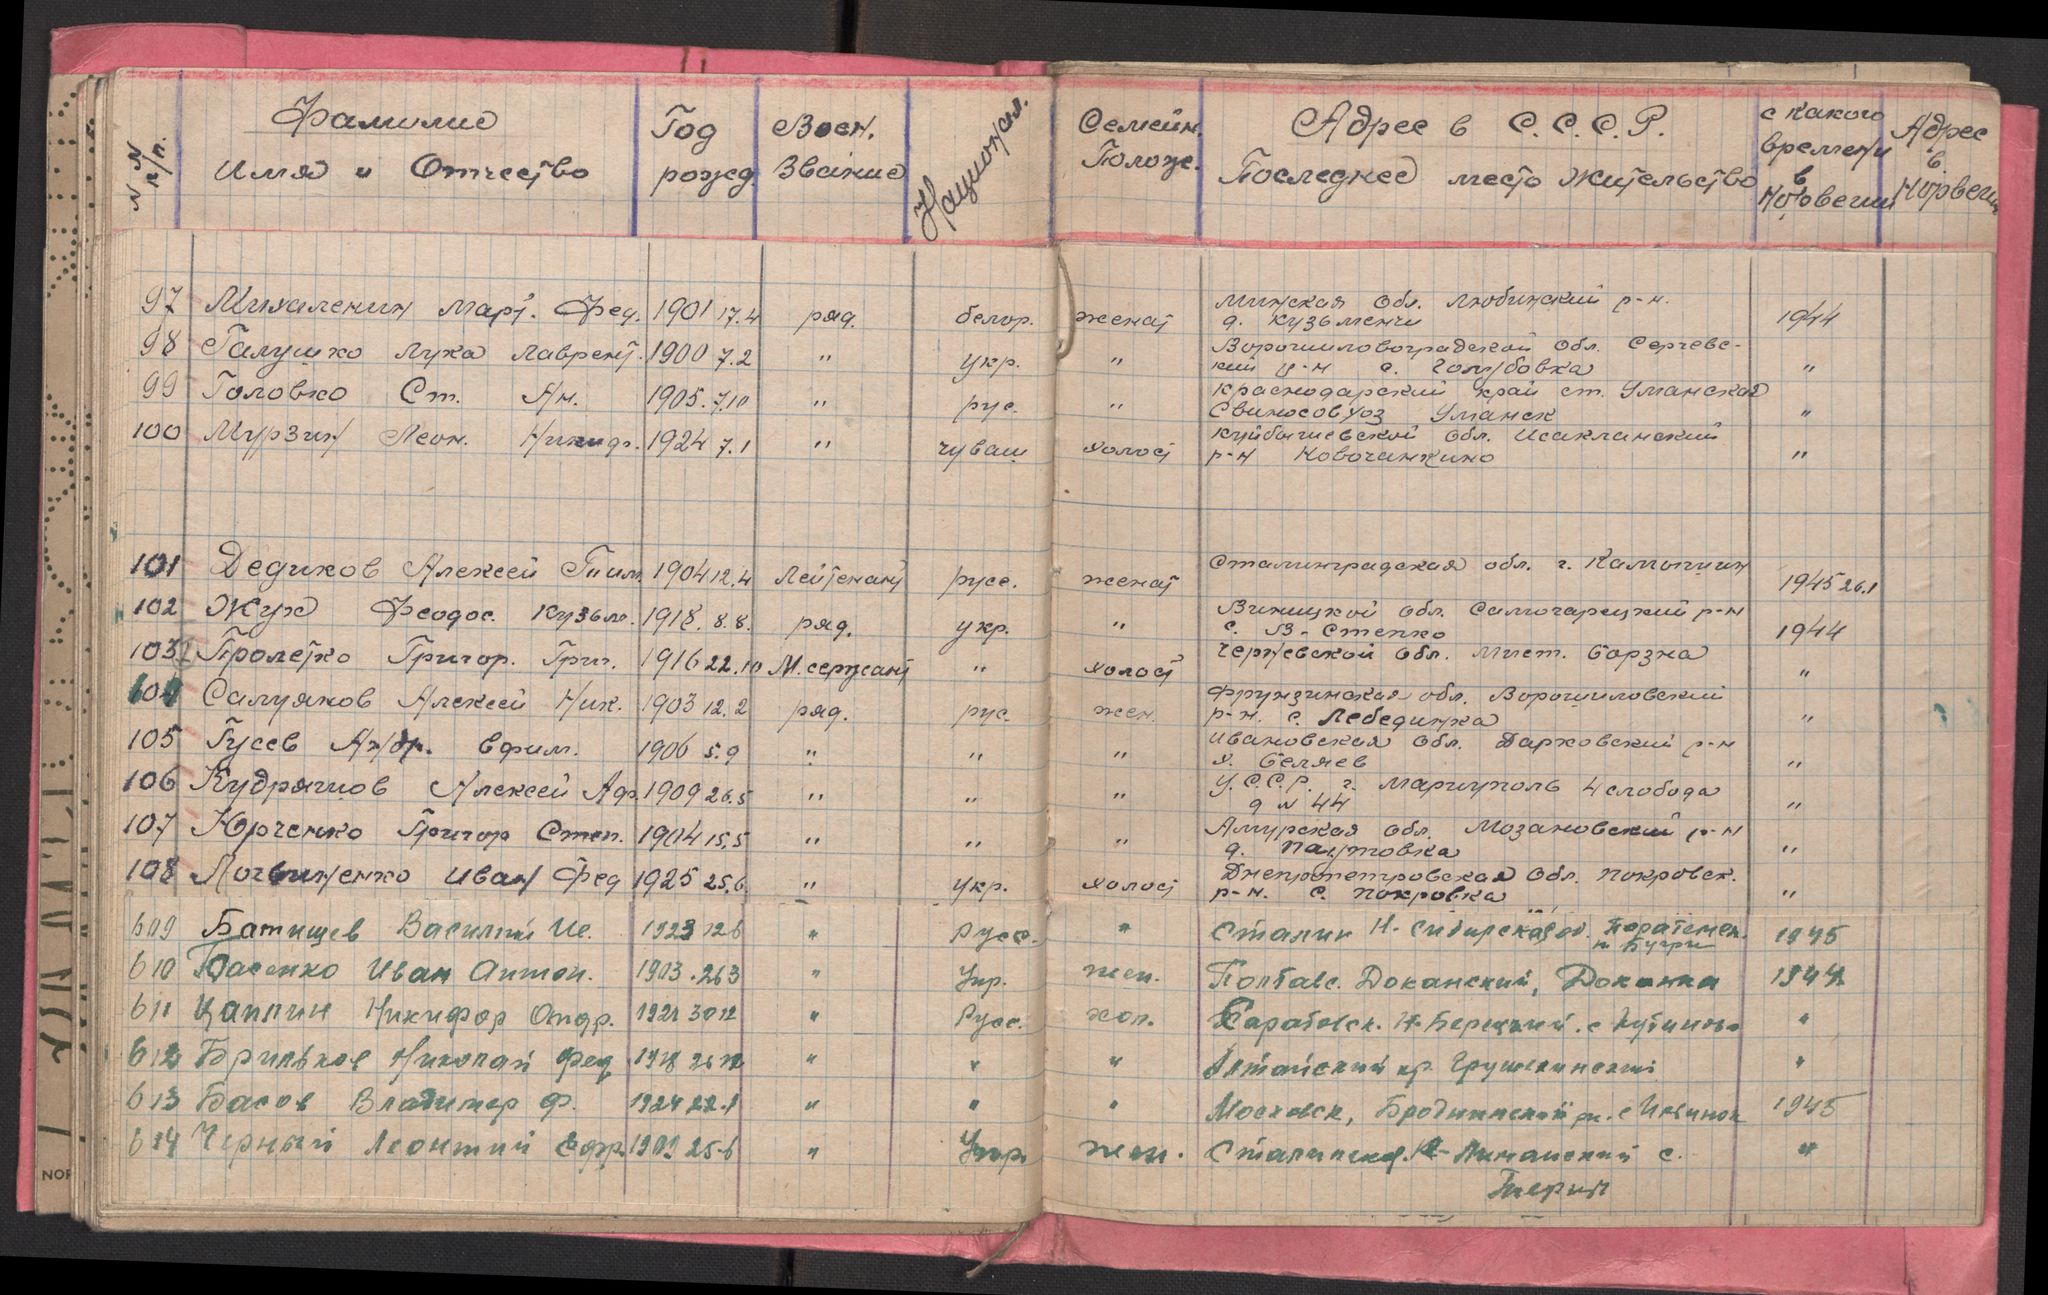 N N п/п. Фамилие Имя и Отчество Год рожд. Воен. Звание Национал. Семейн. Полож. Адрес в С.С.С.Р. Последнее место жительство с какого времени в Норвегии Адрес в Норвегии
97 Михаленин Март. Фед. 1901 17.4 ряд. белор. женат Минская обл. Любинский р-н. д. Кузьменчи 1944
98 Галушко Лука Лаврент. 1900 7.2 " укр. " Ворошиловоградской обл. Сергевский р-н с. Голубовка "
99 Головко Ст. Ан. 1905. 7.10 " рус. " Краснодарский край ст. Уманская Свиносовхоз Уманск "
100 Мурзин Леон. Никиф. 1924 7.1 " чуваш холост Куйбышевской обл. Исаклинский р-н Новочанкино "
101 Дедиков Алексей Тим. 1904 12.4 Лейтенант русс. женат Сталинградская обл. г. Камышин 1945 26.1
102 Жук Феодос. Кузьм. 1918. 8.8. ряд. укр. " Виницкой обл. Самочарецкий р-н с. В-Степко 1944
103 Пролетко Григор. Григ. 1916 22.10 М. сержант " холост Черневской обл. мист. Борзна "
104 Салуяков Алексей Ник. 1903 12.2 ряд. рус. жен. Фрунзинская обл. Ворошиловский р-н. с. Лебединка "
105 Гусев Андр. Ефим. 1906 5.9 " " " Ивановская обл. Дарковский р-н х. Беляев "
106 Кудряшов Алексей Аф. 1909 26.5 " " " У.С.С.Р. г. Мариуполь 4 слобода д N 44 "
107 Юрченко Григор Степ. 1904 15.5 " " " Амурская обл. Мозановский р-н д. Паутовка "
108 Логвиненко Иван Фед 1925 25.6 " укр. холост Днепропетровская обл. Покровск. р-н. с. Покровка "
609 Батищев Василий Ис. 1923 12 6 " Русс. " Сталин Н-Сибирская об. п Бугри 1945
610 Пасенко Иван Антон. 1903. 26 3 " Укр. жен. Полтавс. Диканский, Диканка 1944
611 Цаплин Никифор Андр. 1921 30 12 " Русс. хол. Саратовск. Н-Берецкий. с "
612 Брильков Николай Фед 1918 " " " Алтайский кр. Грушенинский "
613 Басов Владимер Ф. 1924 22.1 " " " Московск, Бродининский р. с 1945
614 Черный Леонтий Ефр. 1909 25.6 " Укр. жен. Сталинска. К-Лиманский с. "